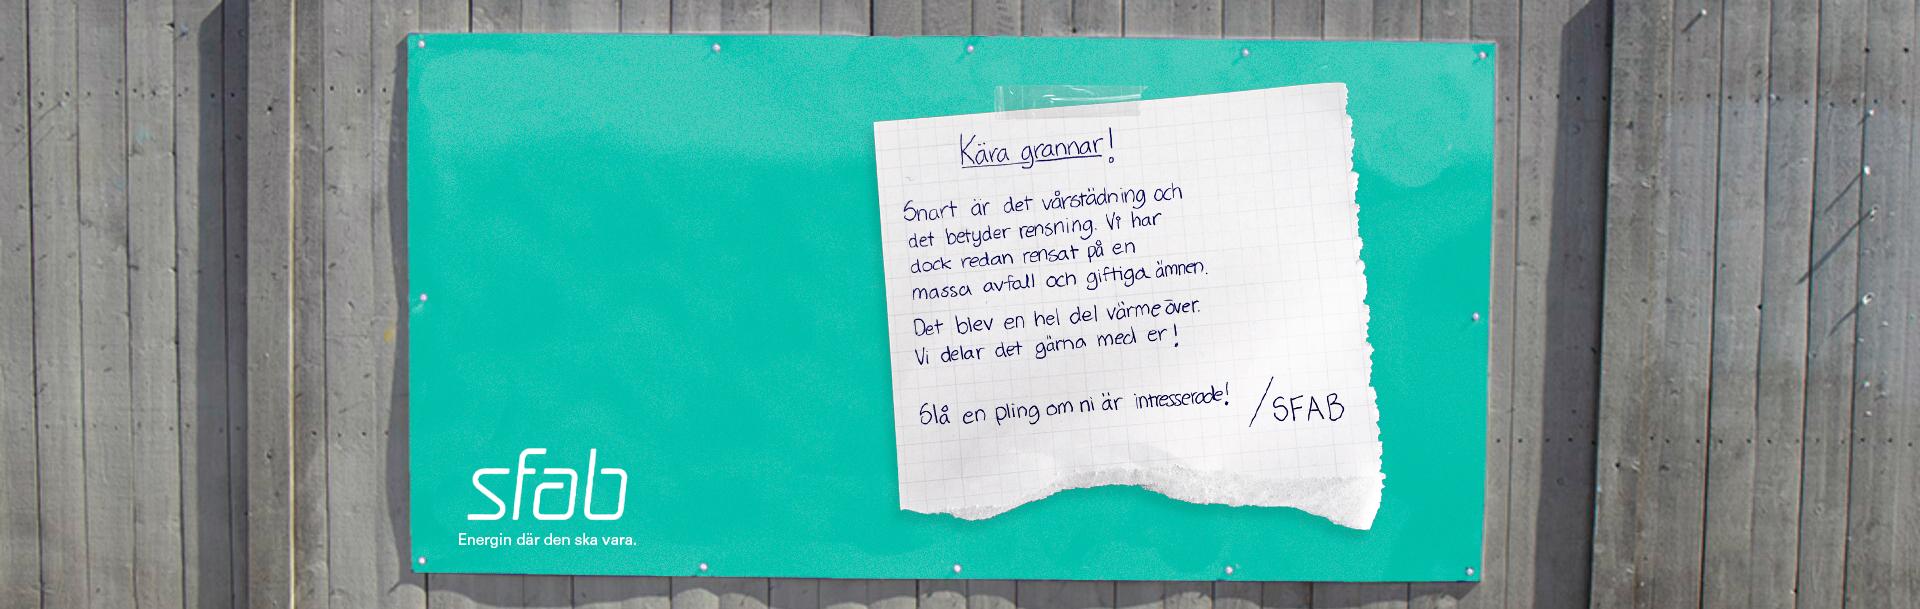 Kära grannar!
Snart är det vårstädning och
det betyder rensning. Vi har
dock redan rensat på en
massa avfall och giftiga ämnen.
Det blev en hel del värme över.
Vi delar det gärna med er!
Slå en pling om ni är intresserade! /SFAB
sfab
Energin där den ska vara.